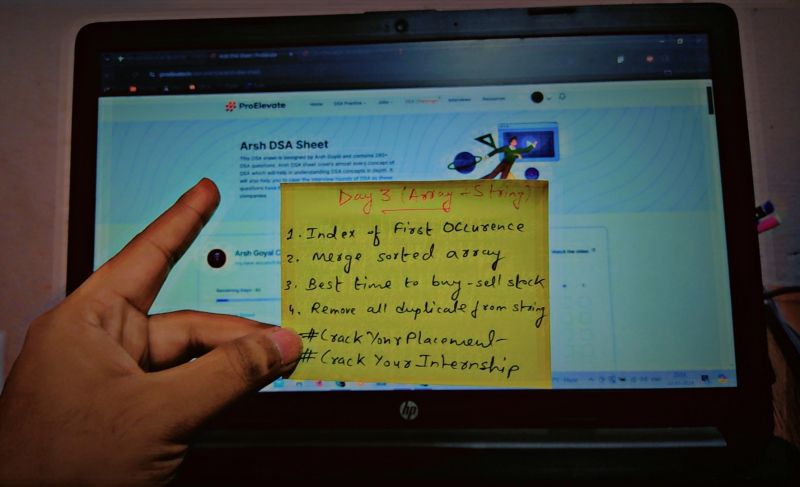 ProElevate
Home DSA Practice Jobs DSA Challenge Interviews Resources
Arsh DSA Sheet
This DSA sheet is designed by Arsh Goyal and contains 280+
DSA questions. Arsh DSA sheet covers almost every concept of
DSA which will help in understanding DSA concepts in depth. It
will also help you to clear the interview rounds of
questions
companies.
Day 3 (Array-String)
1. Index of First Occurence
2. Merge sorted array
3. Best time to buy-sell stock
4. Remove all duplicate from string
#CrackYourPlacement
#CrackYourInternship
Arsh Goyal C
Watch the video
Remaining Days
hp